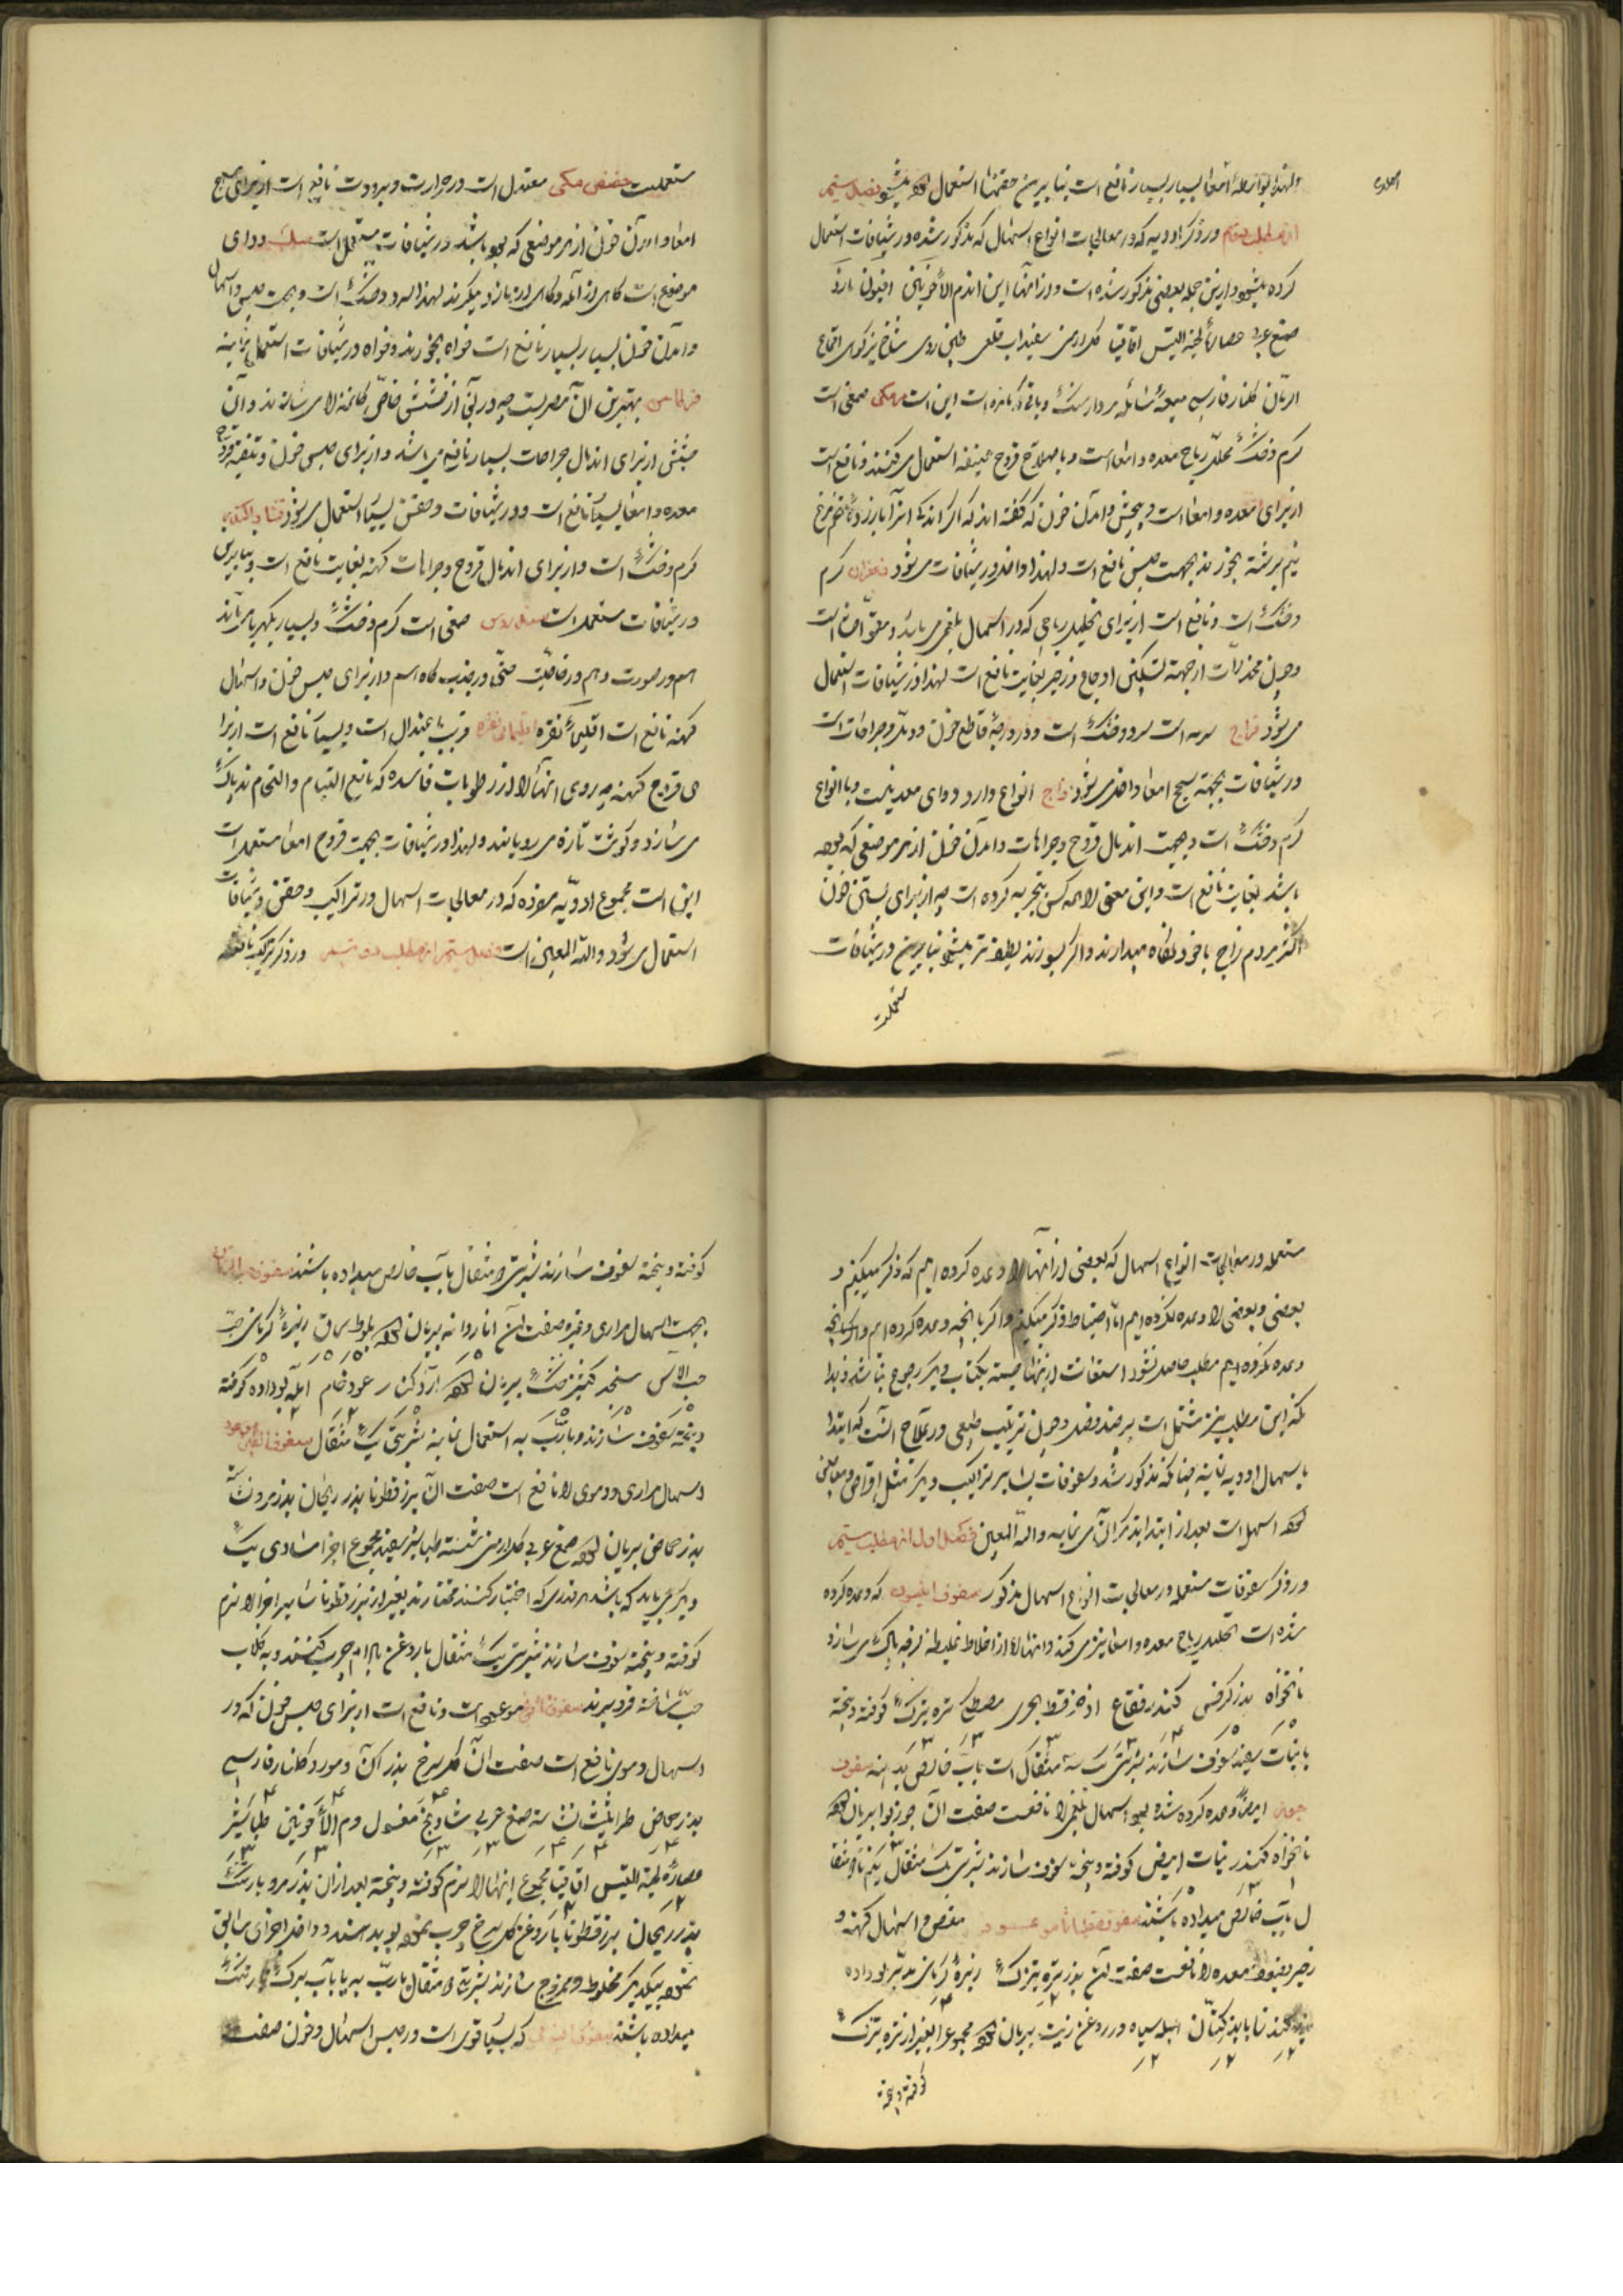 ولهذا بواسطهٔ امعا بسیار بسیار نافع است بنابرین حقنها استعمال فصل سیم
از مطلب دوم در ذکر ادویه که در معالجات انواع اسهال که مذکور شده در شیافات استعمال
کرده میشود و ازین جمله بعضی مذکور شده است و از آنها این اند دم الاخوین افیون
صمغ عربی عصارهٔ لحیة التیس اقاقیا گل ارمنی سفیداب قلعی شاخ بز کوهی اقماع
الرمان گلنار فارسی میعهٔ سائله مردارسنگ و باقی که مانده است این است مر مکی صمغی است
گرم و خشک محلل ریاح معده و امعا است و با صلاح قروح عفنه استعمال میکنند و نافع است
از برای معده و امعا است و پیچش و آمدن خون که گفته اند که اگر اندکی از آن با زردهٔ تخم مرغ
نیم برشته بخورند بجهت حبس نافع است و لهذا داخل در شیافات میشود زعفران گرم
و خشک است و نافع است از برای تحلیل ریاحی که در اسهال بلغمی میباشد و مقوی است
و چون مخدرات از جهة تسکین اوجاع و زحیر بغایت نافع است لهذا در شیافات استعمال
میشود سرد و خشک است و ذرور جهة قاطع خون و و جراحات است
در شیافات بجهة سحج امعا داخل میشود زاج انواع دارد و دوای معدنیست و با انواع
گرم و خشک است و بجهت اندمال قروح و جراحات و آمدن خون از هر موضعی که بوده
باشد بغایت نافع است و این معنی را همه کس تجربه کرده است چه از برای بستن خون
اکثر مردم زاج با خود نگاه میدارند و اگر بسوزند لطیف تر میشود بنابرین در شیافات
مستعملست
مستعملست حضض مکی معتدل است در حرارت و برودت نافع است از برای سحج
امعا و آمدن خون از هر موضعی که بوده باشد در شیافات مستعمل است سک دوای
موضوع است گاهی از آمله و گاهی از مازو میگیرند لهذا سرد و خشک است و بجهت حبس اسهال
و آمدن خون بسیار بسیار نافع است خواه بخورند و خواه در شیافات استعمال نمایند
قرطاس بهترین آن مصریست چه در آنجا از قسمی خاص کاغذها میسازند و آن
قسمش از برای اندمال جراحات بسیار نافع میباشد و از برای حبس خون و تنقیه قروح
معده و امعا بسیار نافع است و در شیافات و حقن بسیار استعمال میشود
گرم و خشک است و از برای اندمال قروح و جراحات کهنه بغایت نافع است و بنابرین
در شیافات مستعمل است سندروس صمغی است گرم و خشک و بسیار بکهربا میماند
هم در صورت و هم در خاصیت حتی در جذب کاه هم و از برای حبس خون و اسهال
کهنه نافع است اقلیمیاء نقره قریب باعتدال است و بسیار نافع است از برای
قروح کهنه چه روی آنها را از رطوبات فاسده که مانع التیام و التحام اند پاک
میسازد و گوشت تازه میرویاند و لهذا در شیافات بجهت قروح امعا مستعمل است
این است مجموع ادویه مفرده که در معالجات اسهال در تراکیب و حقن و شیافات
استعمال میشود و الله المعین است فصل سیم از مطلب دویم در ذکر تراکیب نافعه
مستعمله در معالجات انواع اسهال که بعضی از آنها را وعده کرده ایم که ذکر میکنیم و
بعضی و بعضی را وعده نکرده ایم اما احتیاطا ذکر میکنیم و اگر بآنچه وعده کرده ایم و اگر بآنچه
وعده نکرده ایم مطلب حاصل نشود استعانت از اینها جسته بکتاب دیگر رجوع نباشد و بدا
نکه این مطلب نیز مشتمل است بر چند فصل و چون ترتیب طبیعی در علاج آنست که ابتدا
باسهل ادویه نمایند چنانکه مذکور شد و سفوفات بسایر تراکیب دیگر مثل اقراص و معاجین
اسهل است بعد از ابتدا بذکر آن مینماید و الله المعین فصل اول از مطلب سیم
در ذکر سفوفات مستعمله در معالجات انواع اسهال مذکور سفوف انیسون که وعده کرده
شده است تحلیل ریاح معده و امعا نیز میکند و آنها را از اخلاط غلیظه لزجه پاک میسازد
نانخواه بذر کرفس کندر فقاع اذخر قسط بحری مصطکی تره تیزک کوفته و بیخته
با نبات سفید سفوف سازند شربتی یک سه مثقال است بآب خالص بدهند سفوف
جوزی ایضاً وعده کرده شده بود اسهال بلغمی را نافعست صفت آن جوز بوا بریان
نانخواه کندر نبات ابیض کوفته و بیخته سفوف سازند شربتی یک مثقال یکنیم تا دو مثقا
ل بآب خالص میداده باشند سفوف مقلیاثا موعود مغص و اسهال کهنه و
زحیر و ضعف معده را نافعست صفت آن بذر تره تیزک زیرهٔ کرمانی مدبر بو داده
کندنا بذر کتان هلیله سیاه در روغن زیت بریان مجموع را بغیر از تره تیزک
کوفته و بیخته
کوفته و بیخته سفوف سازند شربتی دو مثقال بآب خالص میداده باشند سفوف حب الرمان
بجهت اسهال مراری وغیره صفت آن اناردانه بریان بلوط سماق زیرهٔ کرمانی
حب الآس سنجد گشنیز خشک بریان آرد کنار عود خام آمله بو داده کوفته
و بیخته سفوف سازند و با رب به استعمال نمایند شربتی یک مثقال سفوف
اسهال مراری و دموی را نافع است صفت آن بزرقطونا بذر ریحان بذر مرو
بذر حماض بریان صمغ عربی گل ارمنی شسته طباشیر سفید مجموع اجزا مساوی یک
دیگر میباید که باشد هر قدری که اختیار کنند مختارند بغیر از بزر قطونا سایر اجزا را نرم
کوفته و بیخته سفوف سازند شربتی یک مثقال با روغن بادام چرب کنند و به گلاب
حب ساخته فرو برند سفوف موعود است و نافع است از برای حبس خون که در
اسهال دموی نافع است صفت آن گل سرخ بذر آن و مورد گلنار فارسی
بذر حماض طراثیث نشاسته صمغ عربی شادنج مغسول دم الاخوین طباشیر
عصارهٔ لحیة التیس اقاقیا مجموع اینها را نرم کوفته و بیخته بعد از آن بذر مرو بارتنگ
بذر ریحان بزر قطونا با روغن گل سرخ چرب نموده بو بدهند و داخل اجزای سابق
نموده بیکدیگر مخلوط و ممزوج سازند شربتی دو مثقال با رب به یا بآب برگ بارتنگ
میداده باشند سفوف که بسیار قوی است در حبس اسهال و خون صفت